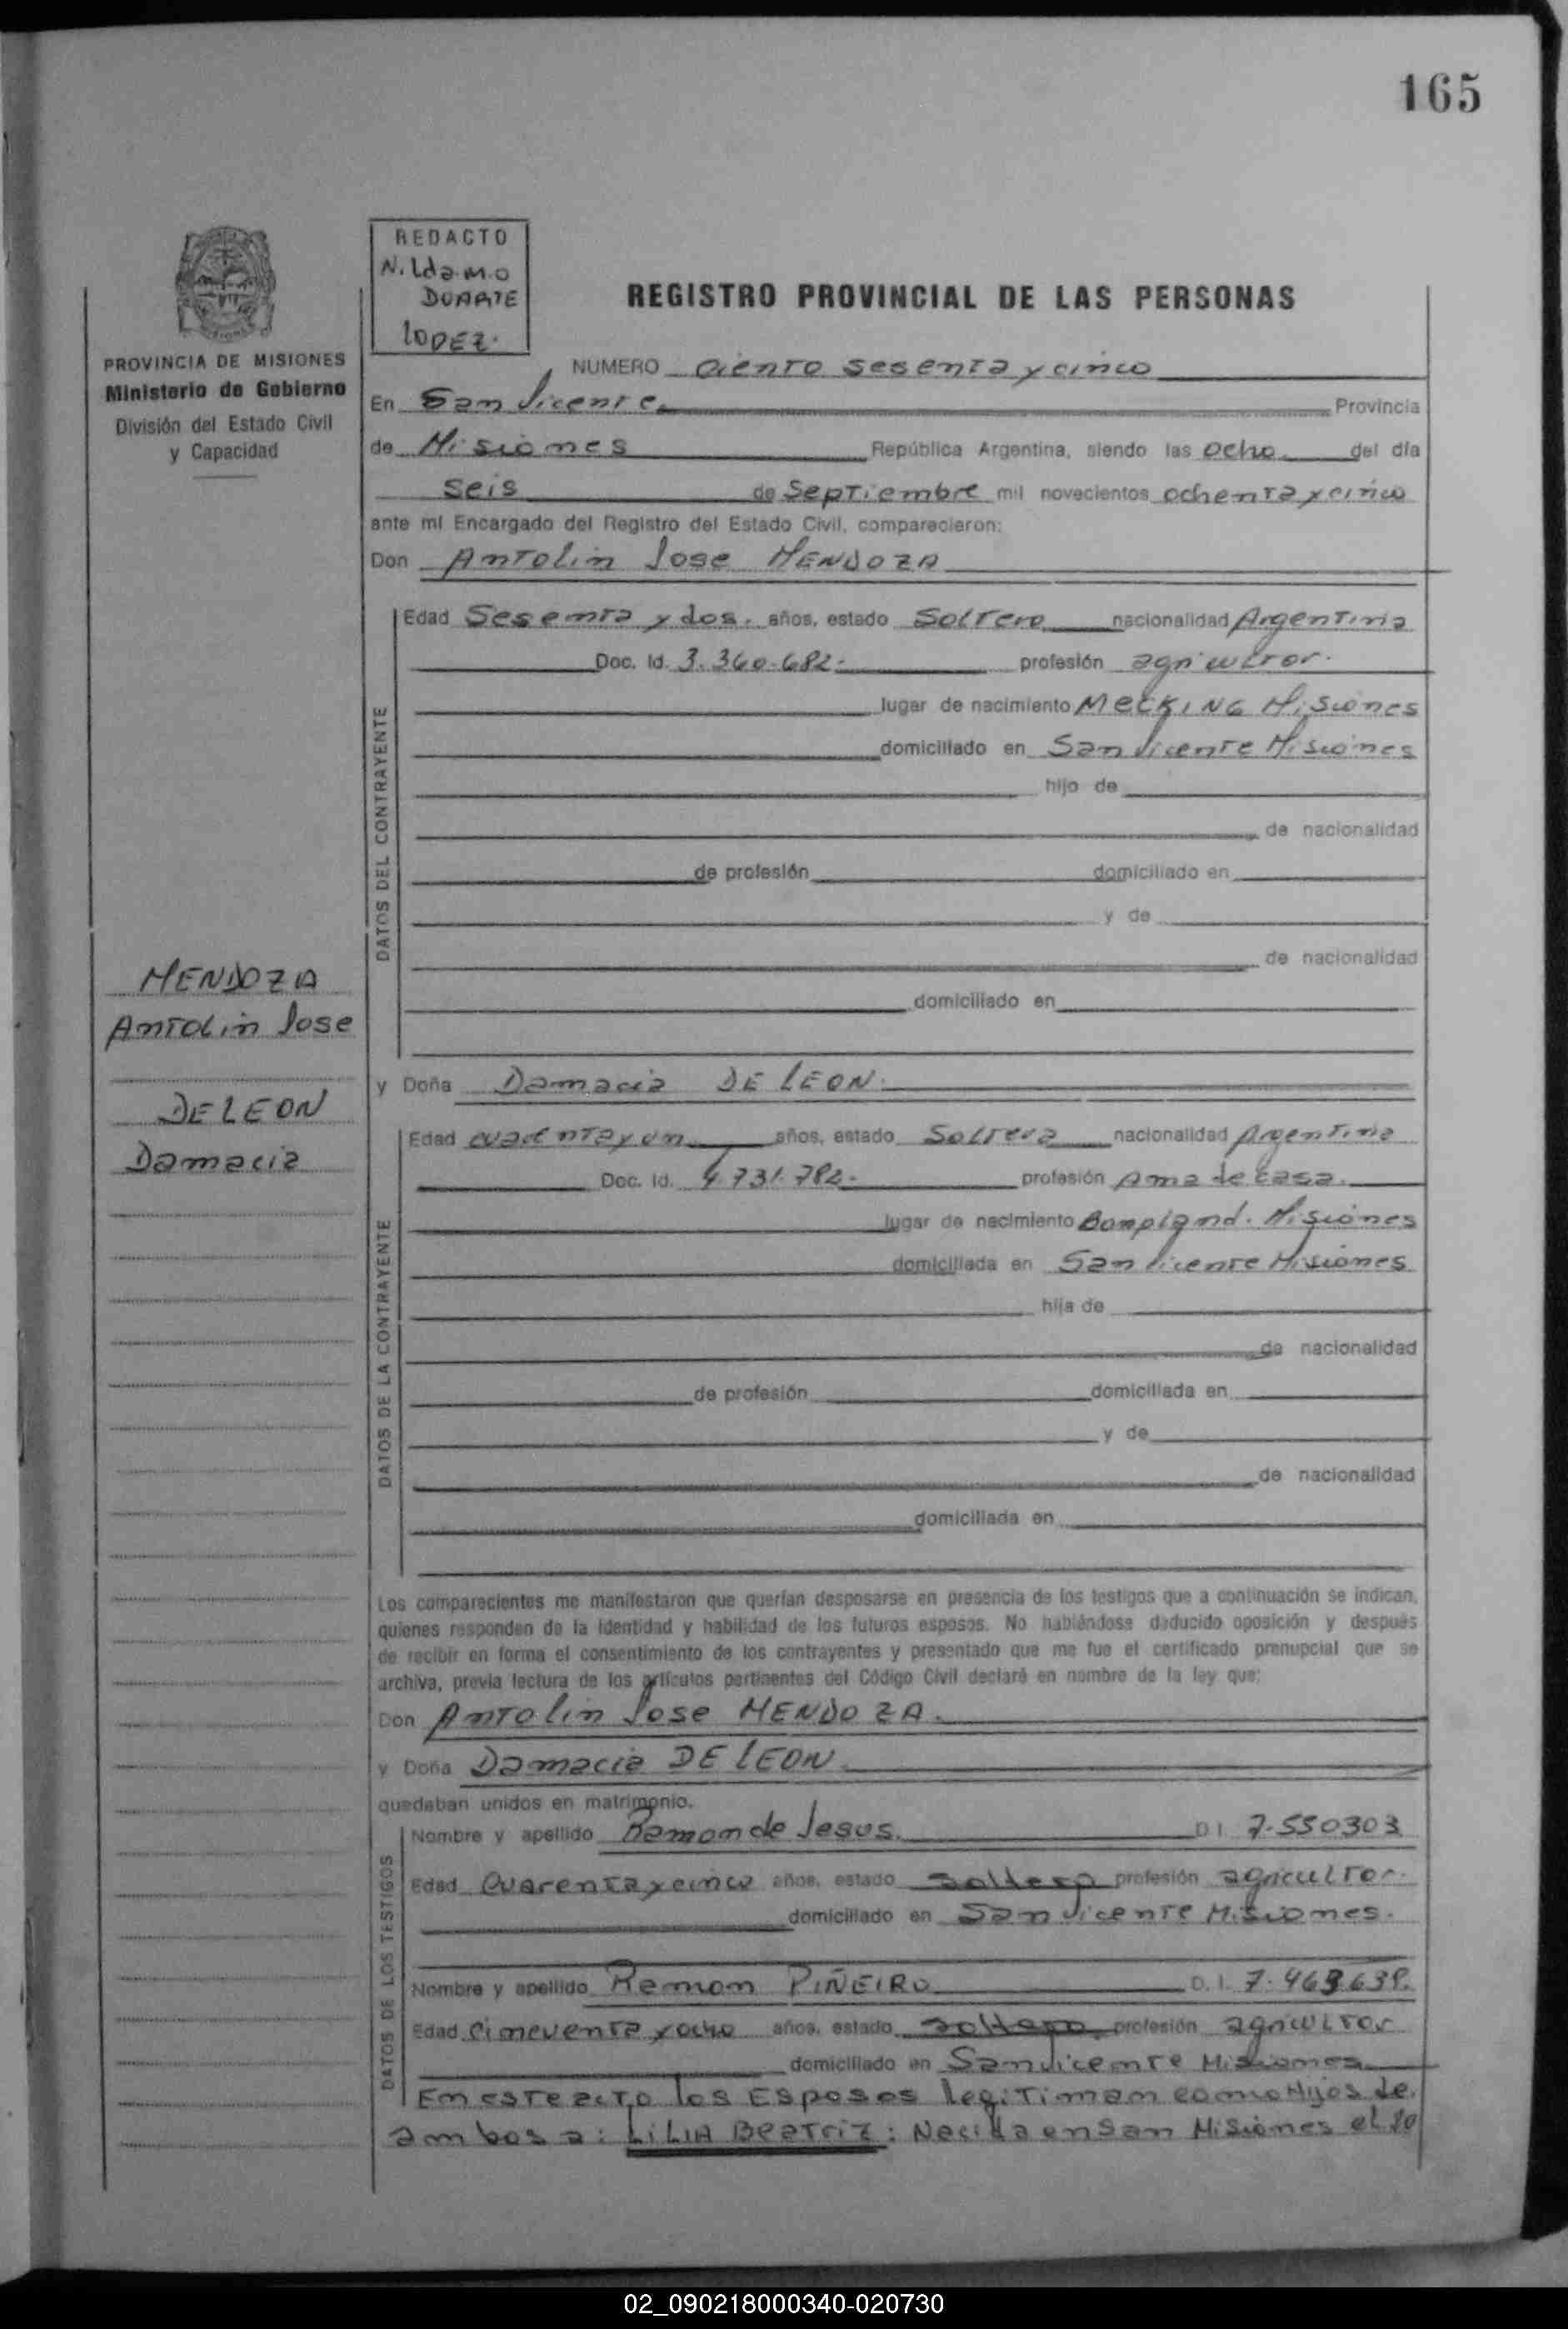 165
REDACTO
Nildamo
DUARTE
LOPEZ.
REGISTRO PROVINCIAL DE LAS PERSONAS
PROVINCIA DE MISIONES
Ministerio de Gobierno
División del Estado Civil
y Capacidad
NUMERO ciento sesenta y cinco
En San Vicente Provincia
de Misiones República Argentina, siendo las ocho del día
seis de Septiembre mil novecientos ochenta y cinco
ante mí Encargado del Registro del Estado Civil, comparecieron:
Don Antolin Jose MENDOZA
DATOS DEL CONTRAYENTE
Edad Sesenta y dos. años, estado Soltero nacionalidad Argentina
Doc. Id. 3.360.682.- profesión agricultor.
lugar de nacimiento Mecking Misiones
domiciliado en San Vicente Misiones
hijo de
de nacionalidad
de profesión domiciliado en
y de
de nacionalidad
domiciliado en
MENDOZA
Antolin Jose
DE LEON
Damacia
y Doña Damacia DE LEON.
DATOS DE LA CONTRAYENTE
Edad cuarenta y un años, estado Soltera nacionalidad Argentina
Doc. Id. 4.731.782.- profesión Ama de casa.
lugar de nacimiento Bompland. Misiones
domiciliada en San Vicente Misiones
hija de
de nacionalidad
de profesión domiciliada en
y de
de nacionalidad
domiciliada en
Los comparecientes me manifestaron que querían desposarse en presencia de los testigos que a continuación se indican,
quienes responden de la identidad y habilidad de los futuros esposos. No habiéndose deducido oposición y después
de recibir en forma el consentimiento de los contrayentes y presentado que me fue el certificado prenupcial que se
archiva, previa lectura de los artículos pertinentes del Código Civil declaré en nombre de la ley que:
Don Antolin Jose MENDOZA.
y Doña Damacia DE LEON.
quedaban unidos en matrimonio.
DATOS DE LOS TESTIGOS
Nombre y apellido Ramon de Jesus. D.I. 7.550303
Edad Cuarenta y cinco años, estado soltero profesión agricultor.
domiciliado en San Vicente Misiones.
Nombre y apellido Ramon PIÑEIRO D.I. 7.463.639.
Edad cincuenta y ocho años, estado soltero profesión agricultor
domiciliado en San Vicente Misiones
En este acto los Esposos legitiman como Hijos de
ambos a: LILIA BEATRIZ: Nacida en San Misiones el 20
02_090218000340-020730